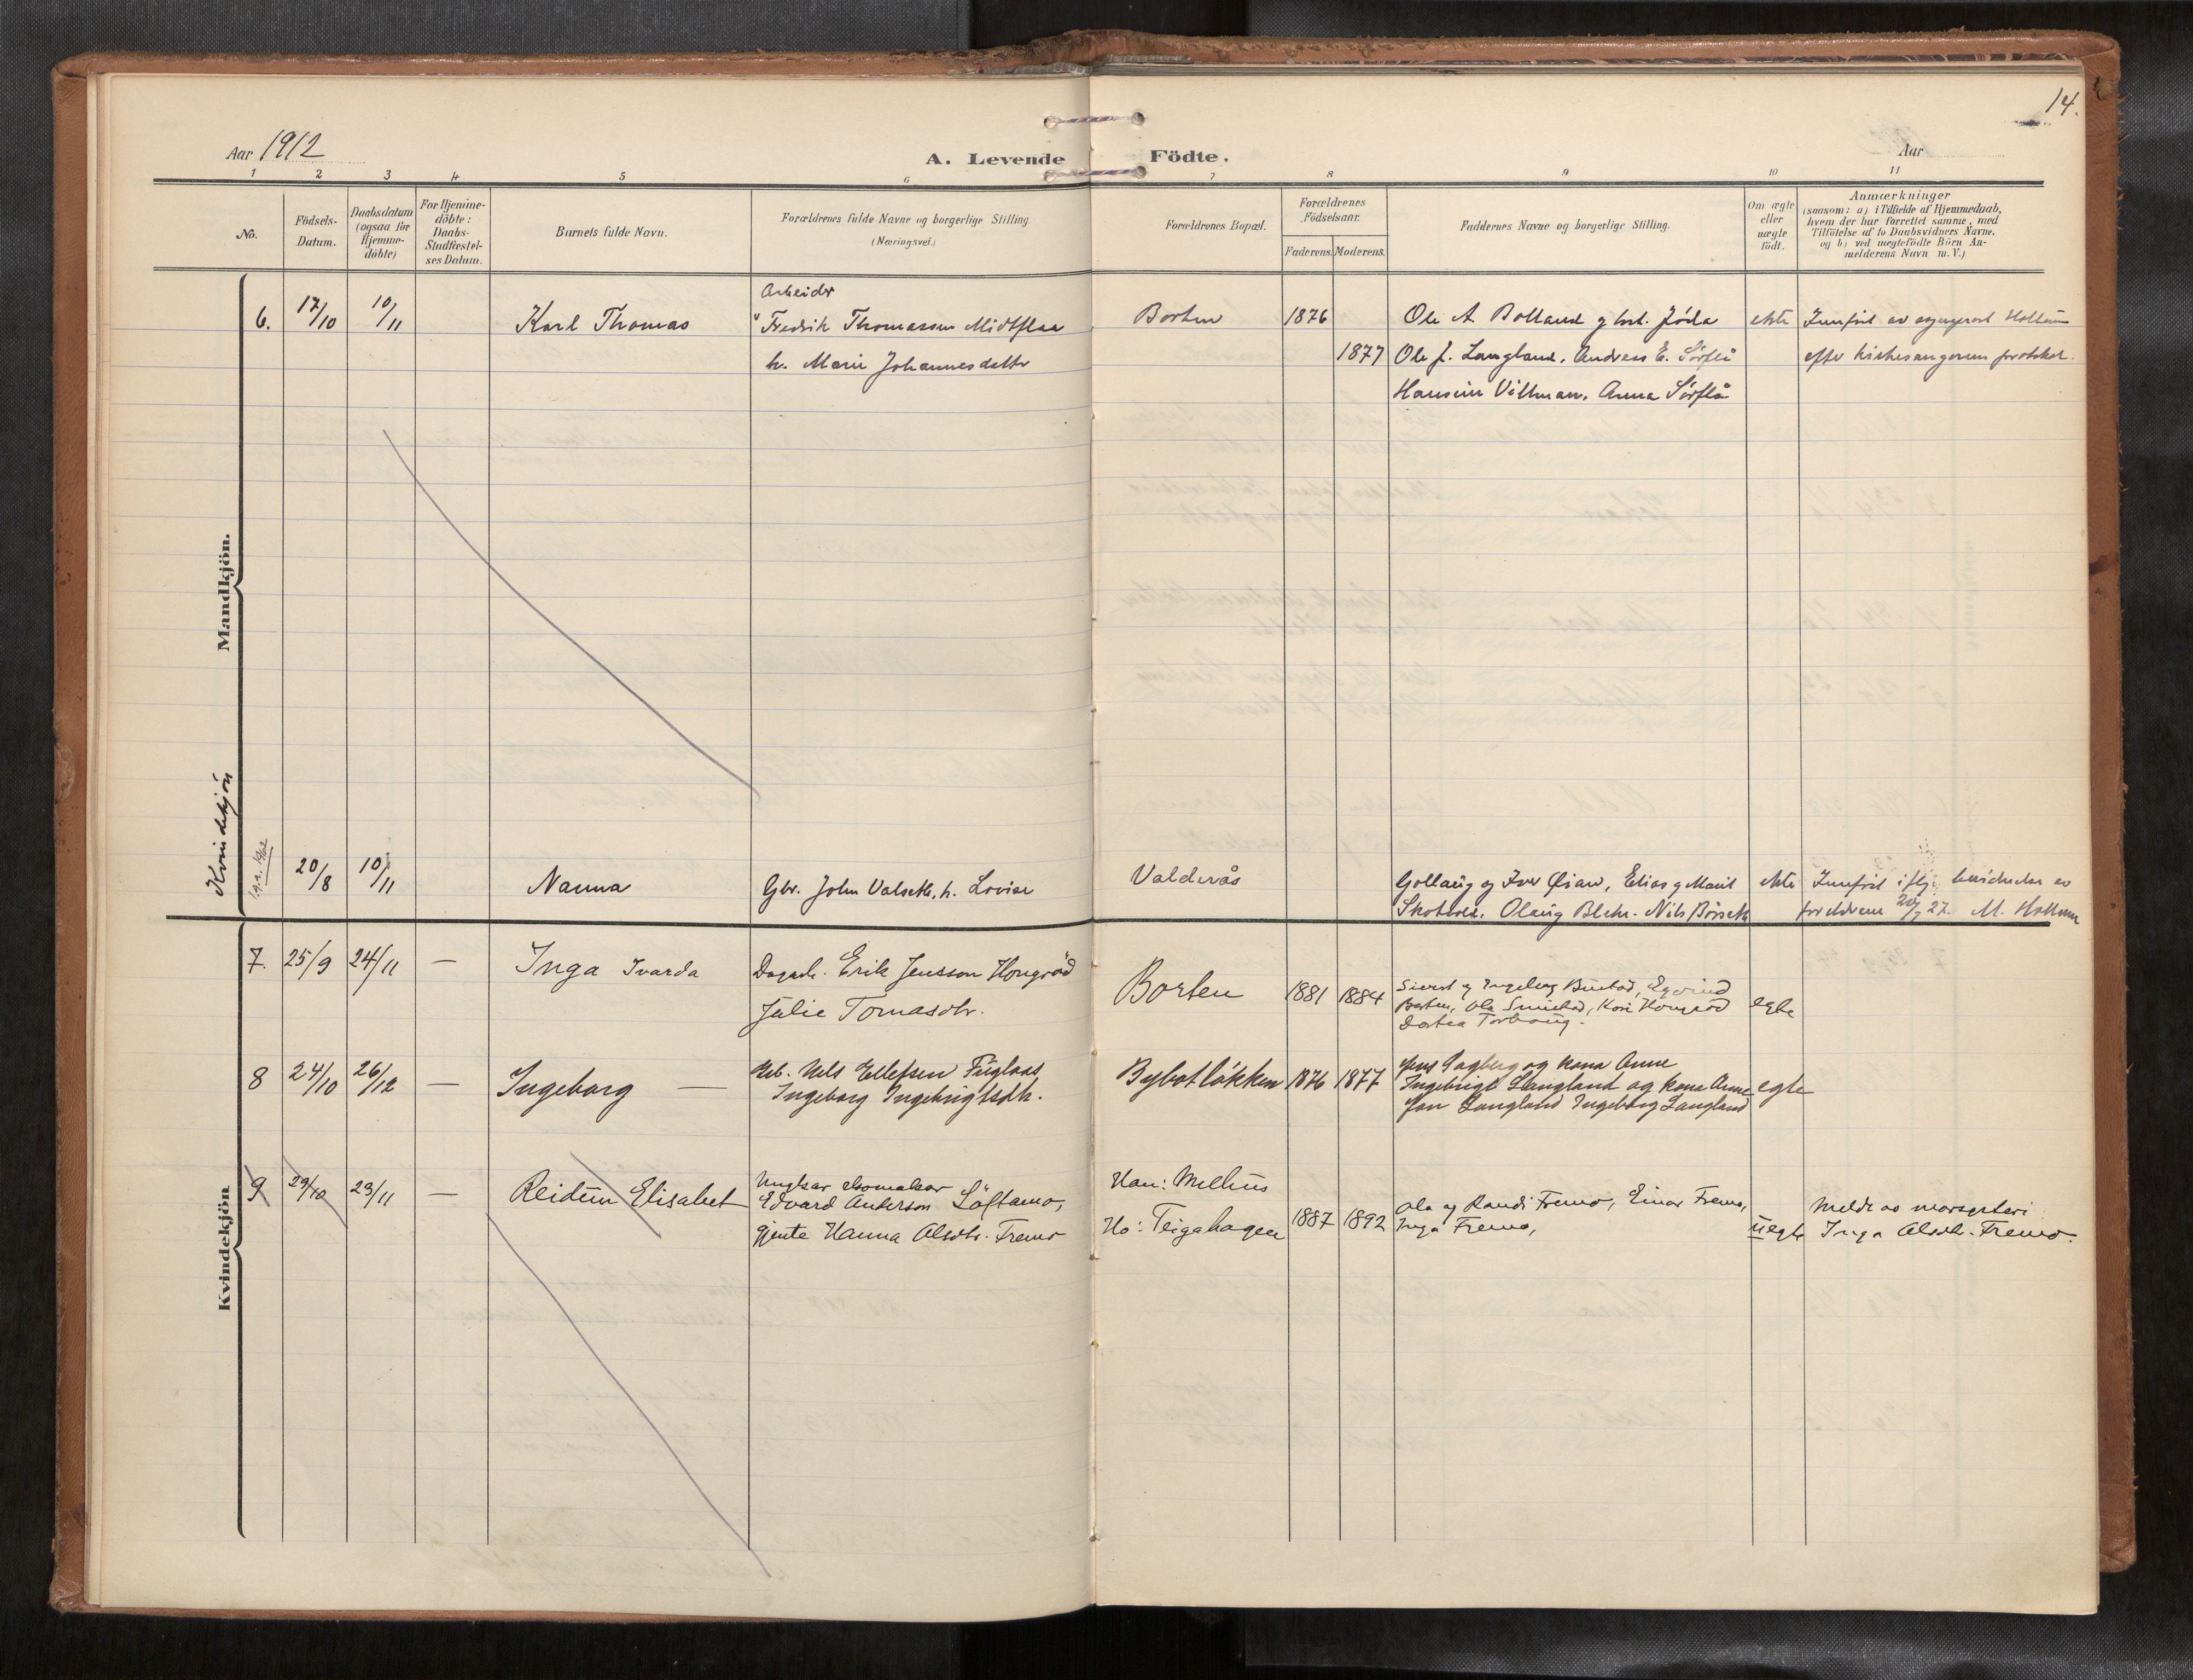 14.
Aar 1912
A. Levende Födte.
Aar
1 2 3 4 5 6 7 8 9 10 11
No.
Födsels-
Datum.
Daabsdatum
(ogsaa for
Hjemme-
döbte)
For Hjemme-
döbte:
Daabs-
Stadfestel-
ses Datum.
Barnets fulde Navn.
Forældrenes fulde Navne og borgerlige Stilling.
(Næringsvei.)
Forældrenes Bopæl.
Forældrenes
Födselsaar.
Faderens. Moderens.
Faddernes Navne og borgerlige Stilling.
Om ægte
eller
uægte
födt.
Anmærkninger
(saasom: a) i Tilfælde af Hjemmedaab,
hvem der har forrettet samme, med
Tilföielse af to Daabsvidners Navne.
og b) ved uægtefödte Börn An-
melderens Navn m. V.)
Mandkjön.
6. 17/10 10/11 Karl Thomas
Arbeider
Fredrik Thomassen Midtflaa
h. Marie Johannesdatter
Borten 1876
1877
Ole A Bolland g hst. Jóda
Ole J. Langland, Andreas E. Sörflå
Hansine Villman, Anna Sörflå
ekte
Innført av sogneprest Holtum
efter kirkesangerens protokol.
Kvindekjön
20/8 10/11 Nanna
Gbr. John Valseth, h. Lovise
Valderås
Gollaug og Iver Øian, Elias g Marit
Olaug Nils Børseth
ekte
Innført iflg.
foreldrene 20/7 27. M. Holtum
Kvindekjön
7. 25/9 24/11 — Inga Ivarda
Dagarb. Erik Jensson Hongröd
Julie Tomasdtr.
Borten 1881 1884
Sivert og Ingeborg
Borten, Ola Kari Hongröd
Dortea
egte
8 24/10 26/12 — Ingeborg —
Arb. Nils Ellefsen Fuglaas
Ingeborg Ingebrigtsdtr.
Bybotlökken 1876 1877
Jens Fagberg og kona Anne
Ingebrigt Langland og kona Anne
Jon Langland Ingeborg Langland
egte
9 29/10 23/11 — Reidun Elisabet
Ungkar skomaker
Edvard Anderson Löftamo,
gjente Hanna Olsdtr. Fremo
Han: Melhus
Ho: Teigahagen
1887 1892
Ola og Randi Fremo, Einar Fremo,
Inga Fremo,
uegte
Meldt av morsysteri
Inga Olsdtr. Fremo.